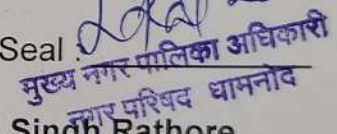 Seal :
मुख्य नगर पालिका अधिकारी
नगर परिषद धामनोद
Singh Rathore